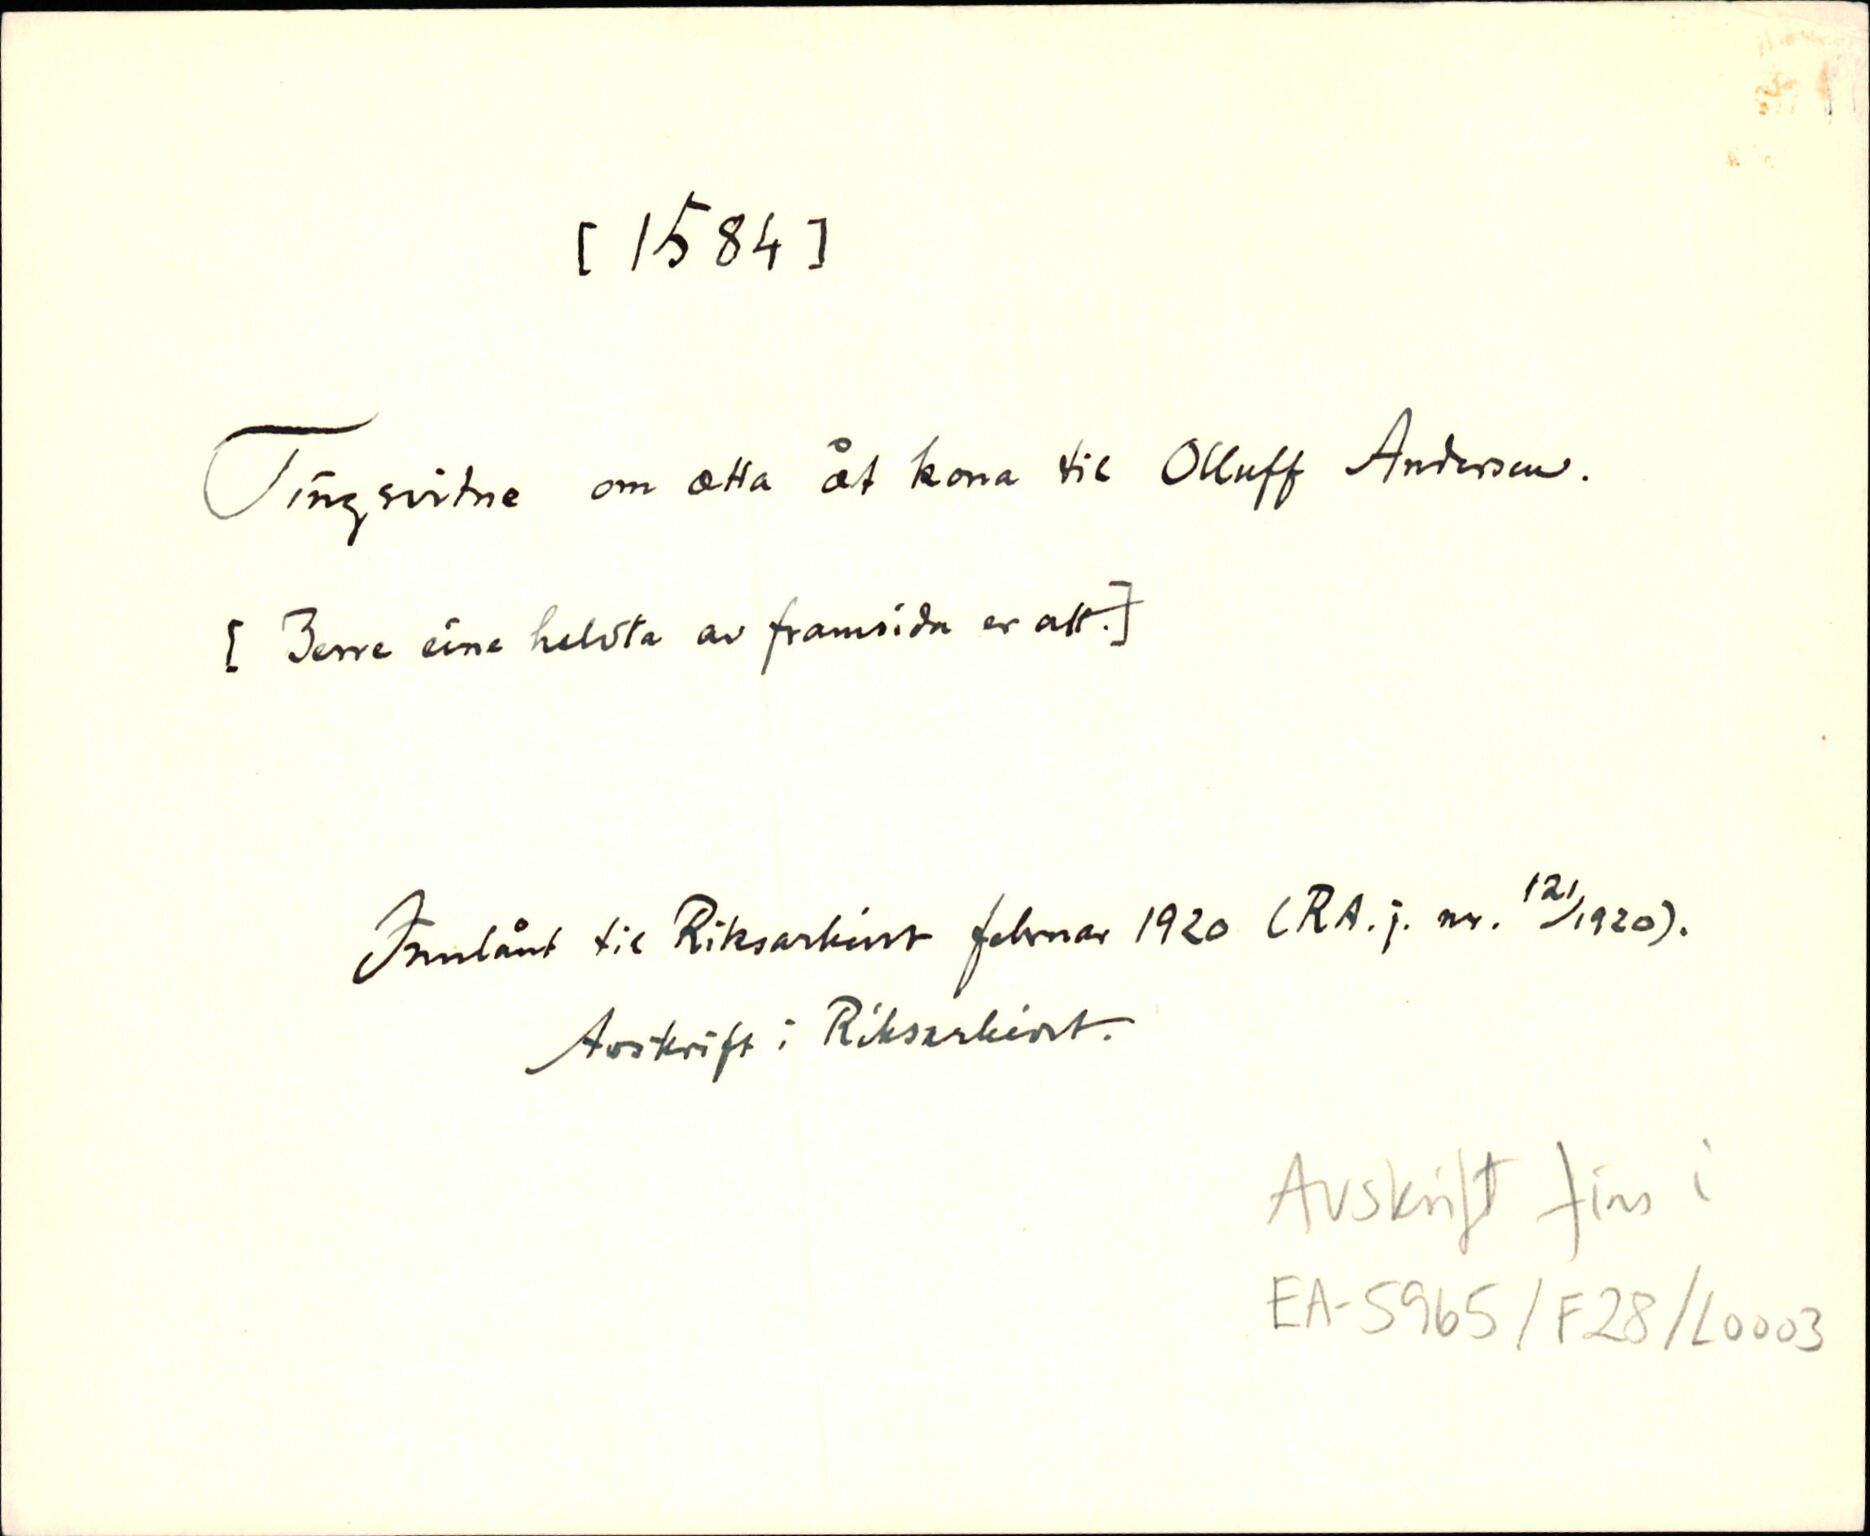 [ 1584 ]
Tingsvitne om ætta åt kona til Olluff Andersen.
[ Berre eine helvta av framsida er att.]
Innlånt til Riksarkivet februar 1920 (RA. j. nr. 121/1920).
Avskrift i Riksarkivet.
Avskrift fins i
EA-5965/F28/L0003